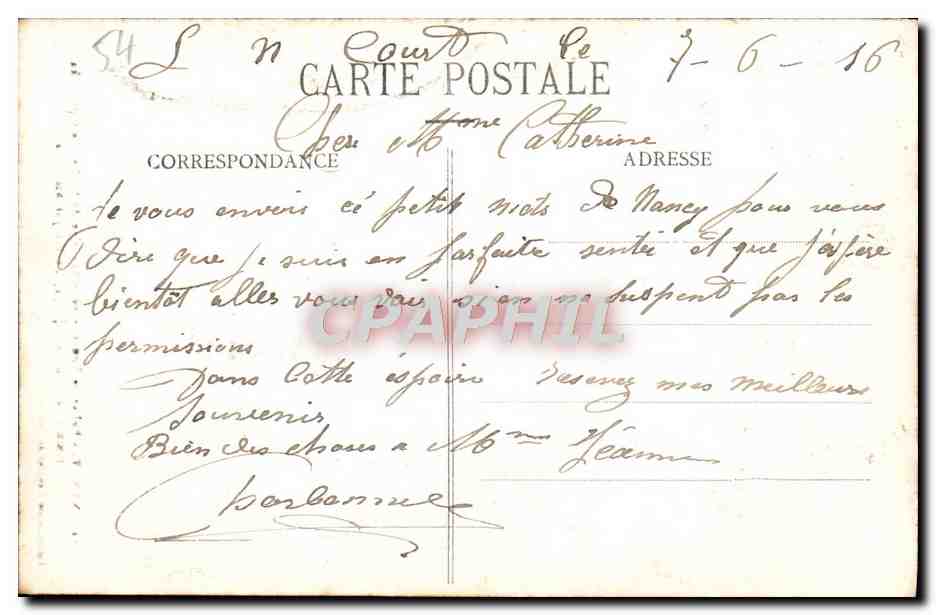 54
L N Court le 7-6-16
CARTE POSTALE
Cher Mme Catherine
CORRESPONDANCE
ADRESSE
Je vous envoie cé petit mots de Nancy pour vous
dire que je suis en parfaite sentée et que j'espère
bientôt aller vous voir si en ne suspent pas les
permissions
CPAPHIL
Dans cette éspoire resevez mes meilleurs
souvenir
Bien des choses a Mme Jéanne
Charbonnel